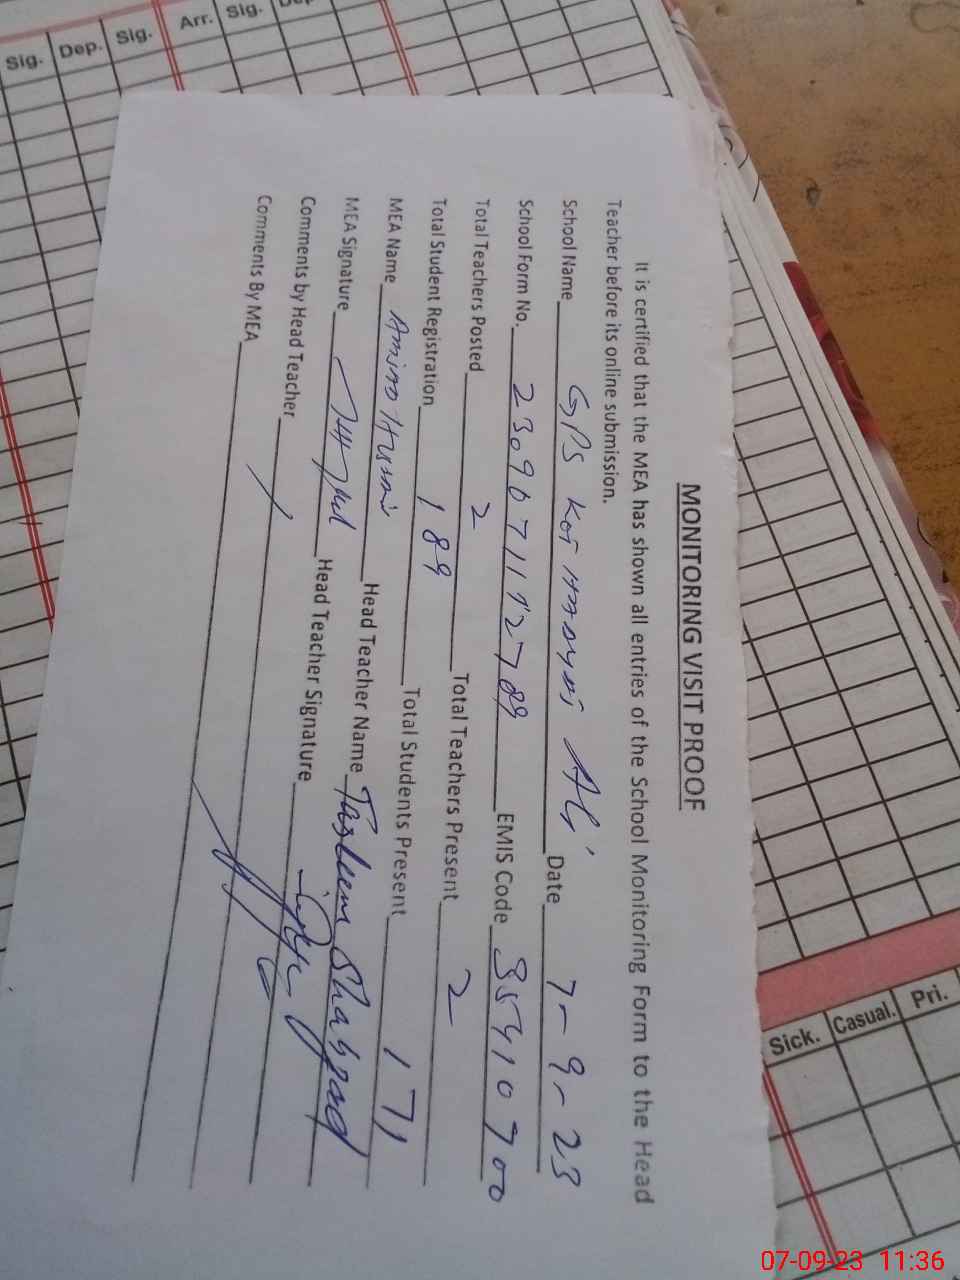 Sig.
Dep.
Sig.
Arr.
Sig.
MONITORING VISIT PROOF
It is certified that the MEA has shown all entries of the School Monitoring Form to the Head
Teacher before its online submission.
School Name GPS Kot Ali Date 7-9-23
School Form No. EMIS Code 35410700
Total Teachers Posted 2 Total Teachers Present 2
Total Student Registration 189 Total Students Present 171
MEA Name Head Teacher Name Tasleem Shahzad
MEA Signature Head Teacher Signature
Comments by Head Teacher
Comments By MEA
Sick.
Casual.
Pri.
07-09-23 11:36